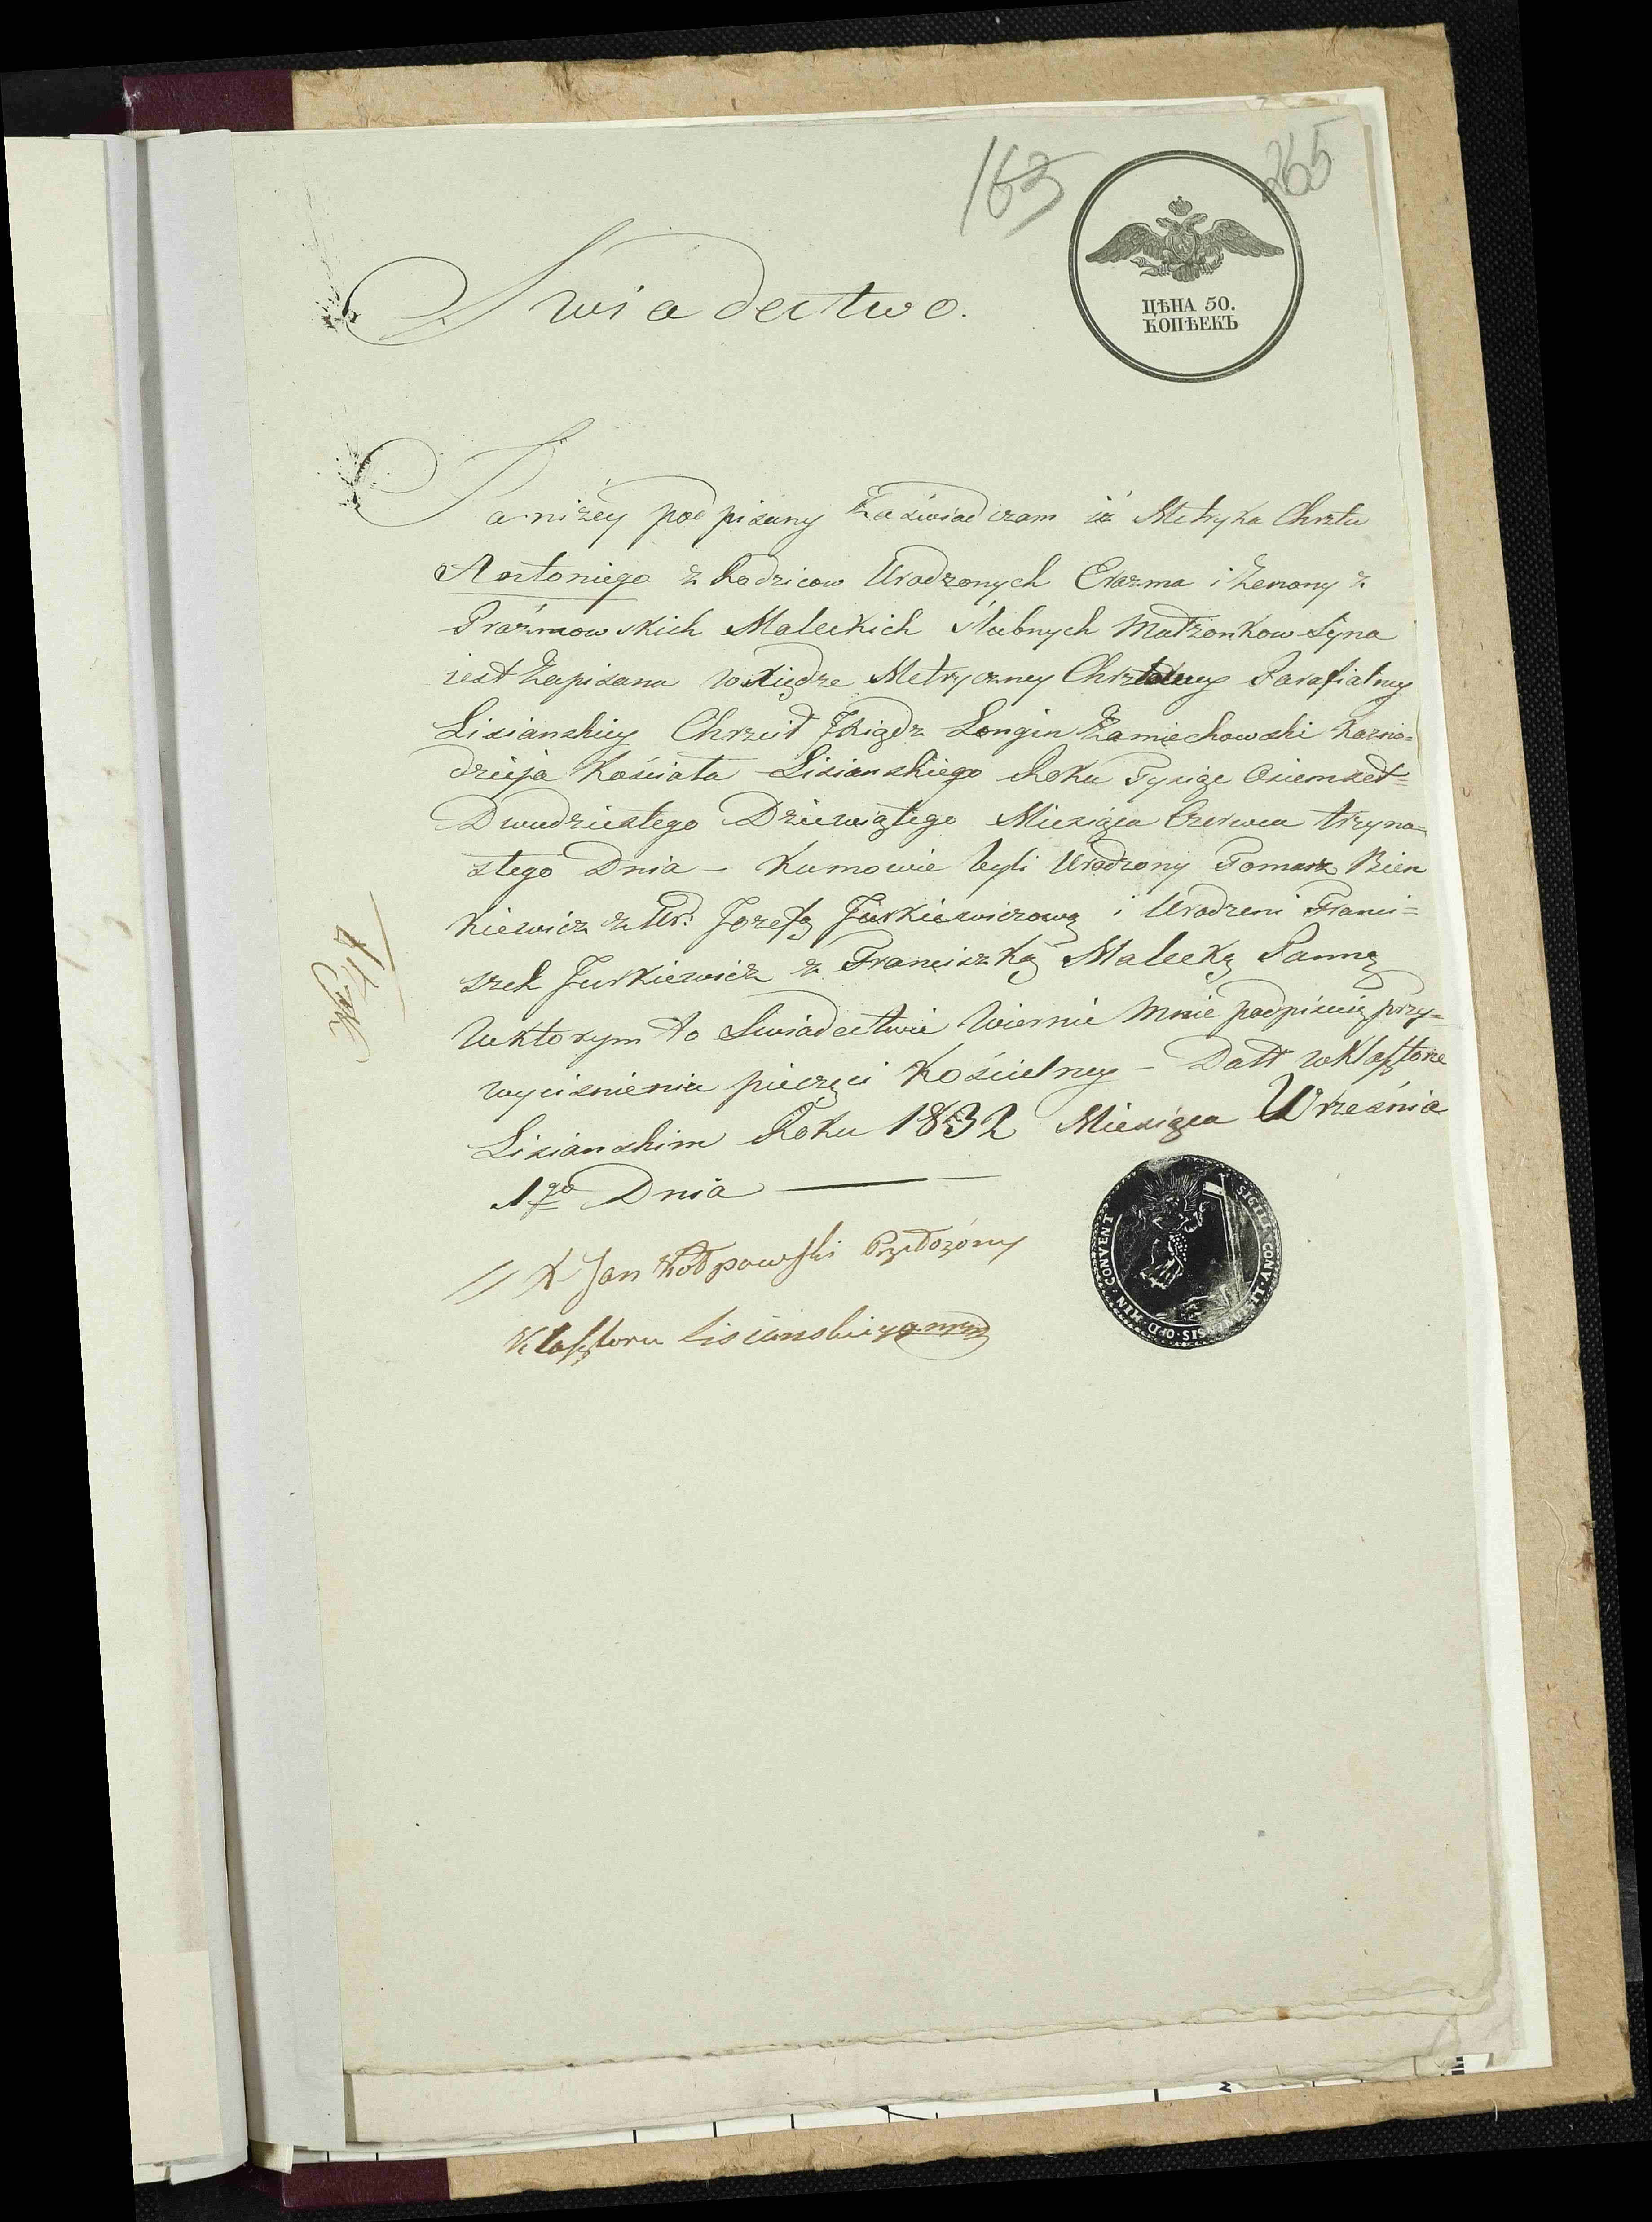 163
265
ЦѢНА 50.
КОПѢЕКЪ
Swiadectwo.
Ja niżey podpisany Zaświadczam iż Metryka Chrztu
Antoniego z Rodzicow Urodzonych Erazma i Zenony z
Prażmowskich Maleckich Ślubnych Małżonkow Syna
iest Zapisana w Xiędze Metryczney Parafialney
Lisianskiey Chrzcił JXiądz Longin Zamiechowski Kazno=
dzieja Kościoła Lisianskiego Roku Tysiąc Osiemset=
Dwudziestego Dziewiątego Miesiąca Czerwca trzyna=
stego Dnia - Kumowie byli Urodzony Tomasz Bien
kiewicz z Ur: Jozefą Jurkiewiczową i Urodzeni Franci=
szek Jurkiewicz z Franciszką Malecką Panną
W ktorym to Swiadectwie Wiernie Mnie podpisuię przy=
wycisnieniu pieczęci Kościelney - Datt w Klasztorze
Lisianskim Roku 1832 Miesiąca Września
1go Dnia
X Jan Przełożóny
Klasztoru Lisianskiego mp
No 47
SIGILL CONV. ORD. MIN CONVENT